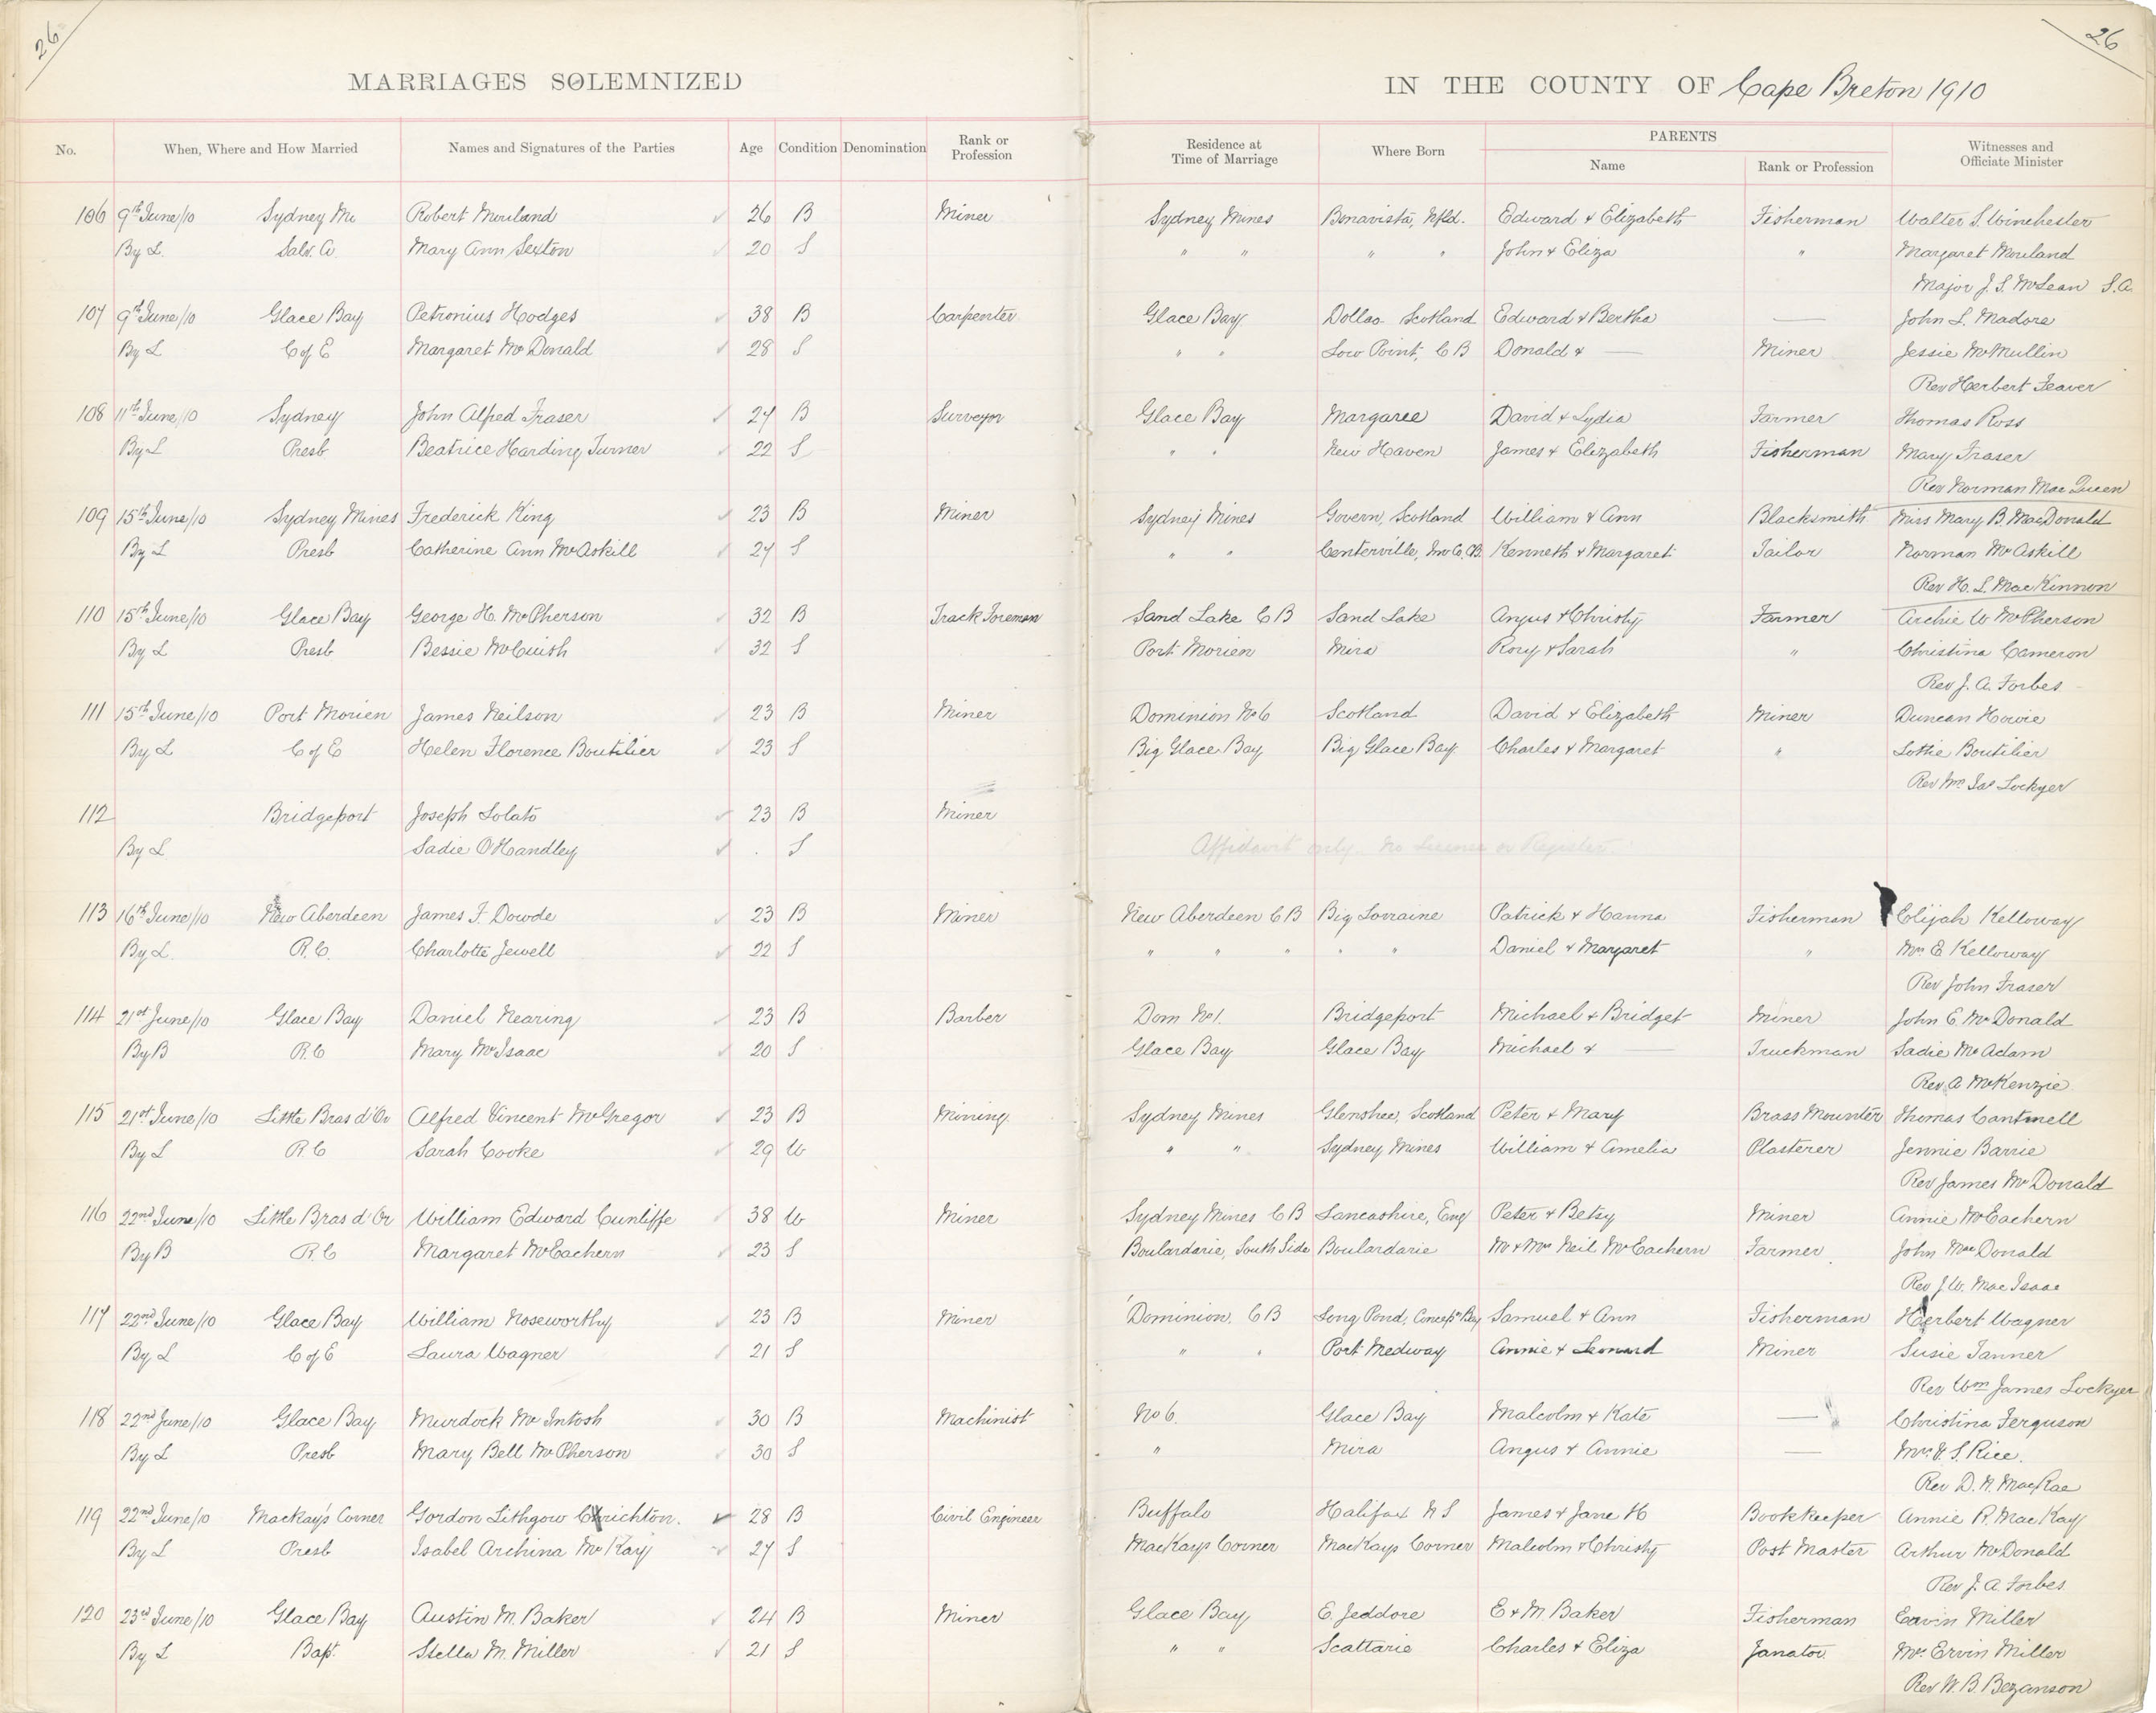 26
26
MARRIAGES SOLEMNIZED
IN THE COUNTY OF Cape Breton 1910
No. When, Where and How Married Names and Signatures of the Parties Age Condition Denomination Rank or Profession Residence at Time of Marriage Where Born PARENTS Name Rank or Profession Witnesses and Officiate Minister
106 9th June/10 Sydney Mi Robert Mouland 26 B Miner Sydney Mines Bonavista, Nfld. Edward & Elizabeth Fisherman Walter S. Winchester
By L. Salv. A. Mary Ann Sexton 20 S " " " " John & Eliza " Margaret Mouland
Major J. S. McLean S.A.
107 9th June/10 Glace Bay Petronius Hodges 38 B Carpenter Glace Bay Dollao Scotland Edward & Bertha — John L. Madore
By L C of E Margaret McDonald 28 S " " Low Point, C B Donald & — Miner Jessie McMullin
Rev Herbert Feaver
108 11th June/10 Sydney John Alfred Fraser 27 B Surveyor Glace Bay Margaree David & Lydia Farmer Thomas Ross
By L Presb Beatrice Harding Turner 22 S " " New Haven James & Elizabeth Fisherman Mary Fraser
Rev Norman MacQueen
109 15th June/10 Sydney Mines Frederick King 23 B Miner Sydney Mines Govern, Scotland William & Ann Blacksmith Miss Mary B. MacDonald
By L Presb Catherine Ann McAskill 27 S " " Centerville, Inv Co, CB. Kenneth & Margaret Tailor Norman McAskill
Rev H. L. MacKinnon
110 15th June/10 Glace Bay George H. McPherson 32 B Track Foreman Sand Lake C B Sand Lake Angus & Christy Farmer Archie W McPherson
By L Presb Bessie McCuish 32 S Port Morien Mira Rory & Sarah " Christina Cameron
Rev J. A. Forbes
111 15th June/10 Port Morien James Neilson 23 B Miner Dominion No 6 Scotland David & Elizabeth Miner Duncan Howie
By L C of E Helen Florence Boutilier 23 S Big Glace Bay Big Glace Bay Charles & Margaret " Lottie Boutilier
Rev Wm Jas Lockyer
112 Bridgeport Joseph Lolato 23 B Miner
By L Sadie O'Handley . S Affidavit only. No License or Register.
113 16th June/10 New Aberdeen James F. Dowde 23 B Miner New Aberdeen C B Big Lorraine Patrick & Hanna Fisherman Elijah Kelloway
By L. R.C. Charlotte Jewell 22 S " " " " " Daniel & Margaret " Mrs E Kelloway
Rev John Fraser
114 21st June/10 Glace Bay Daniel Nearing 23 B Barber Dom No 1. Bridgeport Michael & Bridget Miner John E. McDonald
By B R.C Mary McIsaac 20 S Glace Bay Glace Bay Michael & — Truckman Sadie McAdam
Rev A McKenzie
115 21st June/10 Little Bras d'Or Alfred Vincent McGregor 23 B Mining Sydney Mines Glenshee, Scotland Peter & Mary Brass Mounter Thomas Cantwell
By L R C Sarah Cooke 29 W " " Sydney Mines William & Amelia Plasterer Jennie Barrie
Rev James McDonald
116 22nd June/10 Little Bras d'Or William Edward Cunliffe 38 W Miner Sydney Mines C B Lancashire, Eng Peter & Betsy Miner Annie McEachern
By B R.C Margaret McEachern 23 S Boulardarie, South Side Boulardarie Mr & Mrs Neil McEachern Farmer John MacDonald
Rev J. W. MacIsaac
117 22nd June/10 Glace Bay William Noseworthy 23 B Miner Dominion. C B Long Pond, Concept Bay Samuel & Ann Fisherman Herbert Wagner
By L C of E Laura Wagner 21 S " " Port Medway Annie & Leonard Miner Susie Tanner
Rev Wm James Lockyer
118 22nd June/10 Glace Bay Murdock McIntosh 30 B Machinist No 6. Glace Bay Malcolm & Kate — Christina Ferguson
By L Presb Mary Bell McPherson 30 S " Mira Angus & Annie — Mrs. S. Rice.
Rev D. N. MacRae
119 22nd June/10 MacKay's Corner Gordon Lithgow Crichton. 28 B Civil Engineer Buffalo Halifax N S James & Jane H Bookkeeper Annie R. MacKay
By L Presb Isabel Archina McKay 27 S MacKays Corner MacKays Corner Malcolm & Christy Post Master Arthur McDonald
Rev J. A. Forbes
120 23rd June/10 Glace Bay Austin M. Baker 24 B Miner Glace Bay E. Jeddore E & M Baker Fisherman Ervin Miller
By L Bapt. Stella M. Miller 21 S " " Scattarie Charles & Eliza Janator Mrs. Ervin Miller
Rev W. B. Bezanson